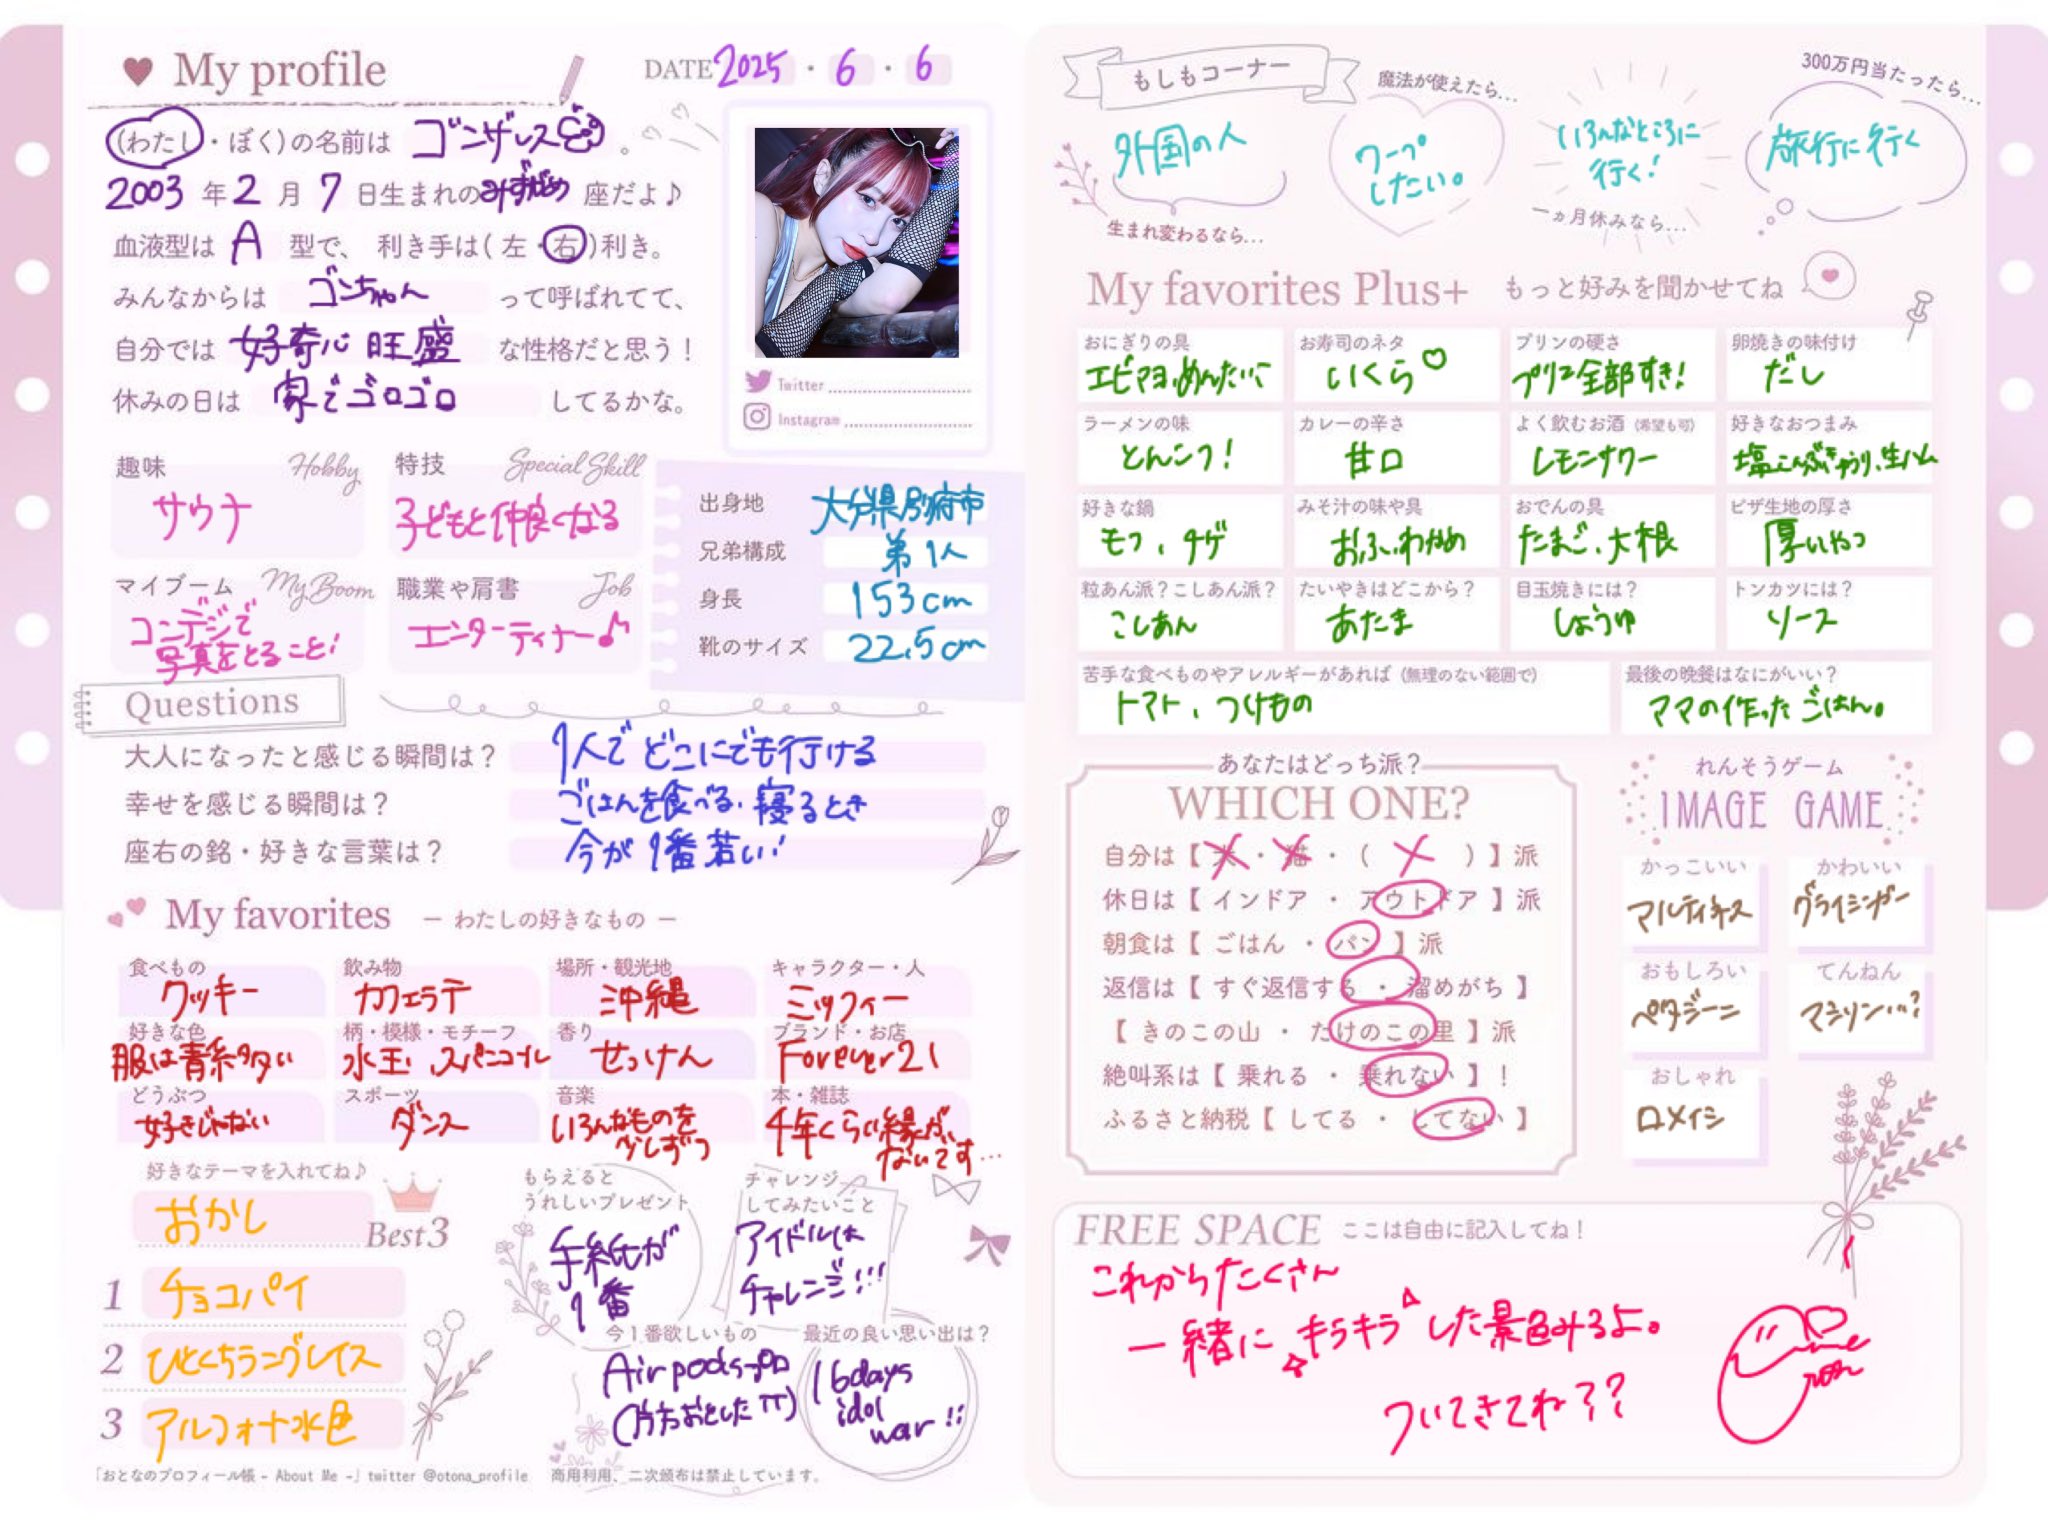 My profile
DATE 2025・6・6
(わたし・ぼく)の名前は ゴンザレス 。
2003 年 2 月 7 日生まれの みずがめ 座だよ♪
血液型は A 型で、 利き手は( 左・右 )利き。
みんなからは ゴンちゃん って呼ばれてて、
自分では 好奇心旺盛 な性格だと思う！
休みの日は 家でゴロゴロ してるかな。
Twitter
Instagram
趣味 Hobby
サウナ
特技 Special Skill
子どもと仲良くなる
マイブーム My Boom
コンデジで
写真をとること!
職業や肩書 Job
エンターティナー♪
出身地 大分県別府市
兄弟構成 弟1人
身長 153cm
靴のサイズ 22.5cm
Questions
大人になったと感じる瞬間は？ 1人でどこにでも行ける
幸せを感じる瞬間は？ ごはんを食べる、寝るとき
座右の銘・好きな言葉は？ 今が1番若い!
My favorites ー わたしの好きなもの ー
食べもの
クッキー
飲み物
カフェラテ
場所・観光地
沖縄
キャラクター・人
ミッフィー
好きな色
服は青系多い
柄・模様・モチーフ
水玉、スパンコール
香り
せっけん
ブランド・お店
Forever21
どうぶつ
好きじゃない
スポーツ
ダンス
音楽
いろんなものを
少しずつ
本・雑誌
4年くらい縁が
ないです…
好きなテーマを入れてね♪
おかし
Best3
1 チョコパイ
2 ひとくちラングレイス
3 アルフォート水色
もらえると
うれしいプレゼント
手紙が
1番
チャレンジ
してみたいこと
アイドルは
チャレンジ!!!
今1番欲しいもの
Airpodsプロ
(片方おとしたTT)
最近の良い思い出は？
16days
idol
war!!
「おとなのプロフィール帳 - About Me -」twitter @otona_profile 商用利用、二次頒布は禁止しています。
もしもコーナー
外国の人
生まれ変わるなら…
魔法が使えたら…
ワープ
したい。
いろんなところに
行く!
一ヵ月休みなら…
300万円当たったら…
旅行に行く
My favorites Plus+ もっと好みを聞かせてね
おにぎりの具
エビマヨ、めんたいこ
お寿司のネタ
いくら♡
プリンの硬さ
プリン全部すき!
卵焼きの味付け
だし
ラーメンの味
とんこつ!
カレーの辛さ
甘口
よく飲むお酒 (希望も可)
レモンサワー
好きなおつまみ
塩こんぶきゅうり、生ハム
好きな鍋
モツ、チゲ
みそ汁の味や具
おふ、わかめ
おでんの具
たまご、大根
ピザ生地の厚さ
厚いやつ
粒あん派？こしあん派？
こしあん
たいやきはどこから？
あたま
目玉焼きには？
しょうゆ
トンカツには？
ソース
苦手な食べものやアレルギーがあれば (無理のない範囲で)
トマト、つけもの
最後の晩餐はなにがいい？
ママの作ったごはん。
あなたはどっち派？
WHICH ONE?
自分は【 犬 ・ 猫 ・ ( ) 】派
休日は【 インドア ・ アウトドア 】派
朝食は【 ごはん ・ パン 】派
返信は【 すぐ返信する ・ 溜めがち 】
【 きのこの山 ・ たけのこの里 】派
絶叫系は【 乗れる ・ 乗れない 】！
ふるさと納税【 してる ・ してない 】
れんそうゲーム
IMAGE GAME
かっこいい
マルティネス
かわいい
グライシンガー
おもしろい
ペタジーニ
てんねん
マシソン…?
おしゃれ
ロメイシ
FREE SPACE ここは自由に記入してね！
これからたくさん
一緒にキラキラした景色みるよ。
ついてきてね??